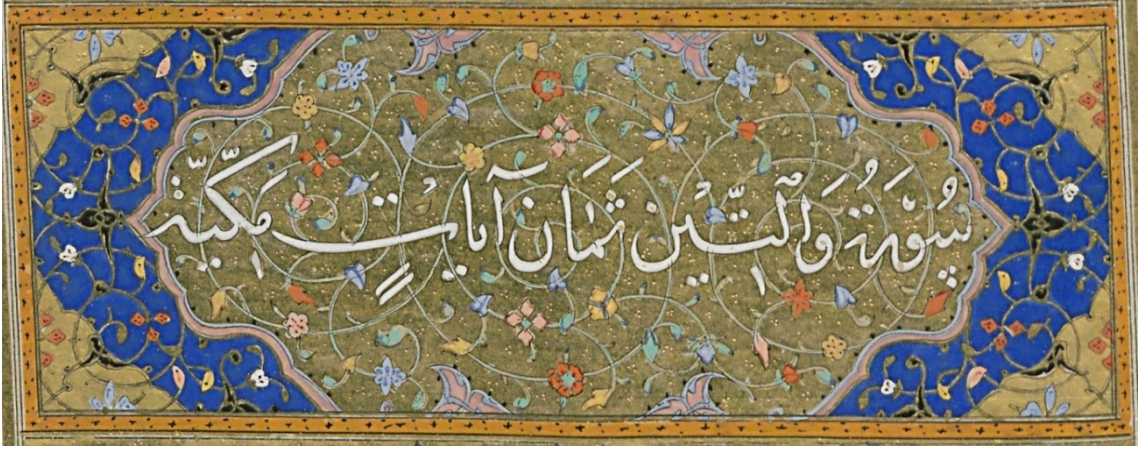 سُورَةُ وَٱلتِّينِ ثَمَان آيَاتٍ مَكِّيَّة